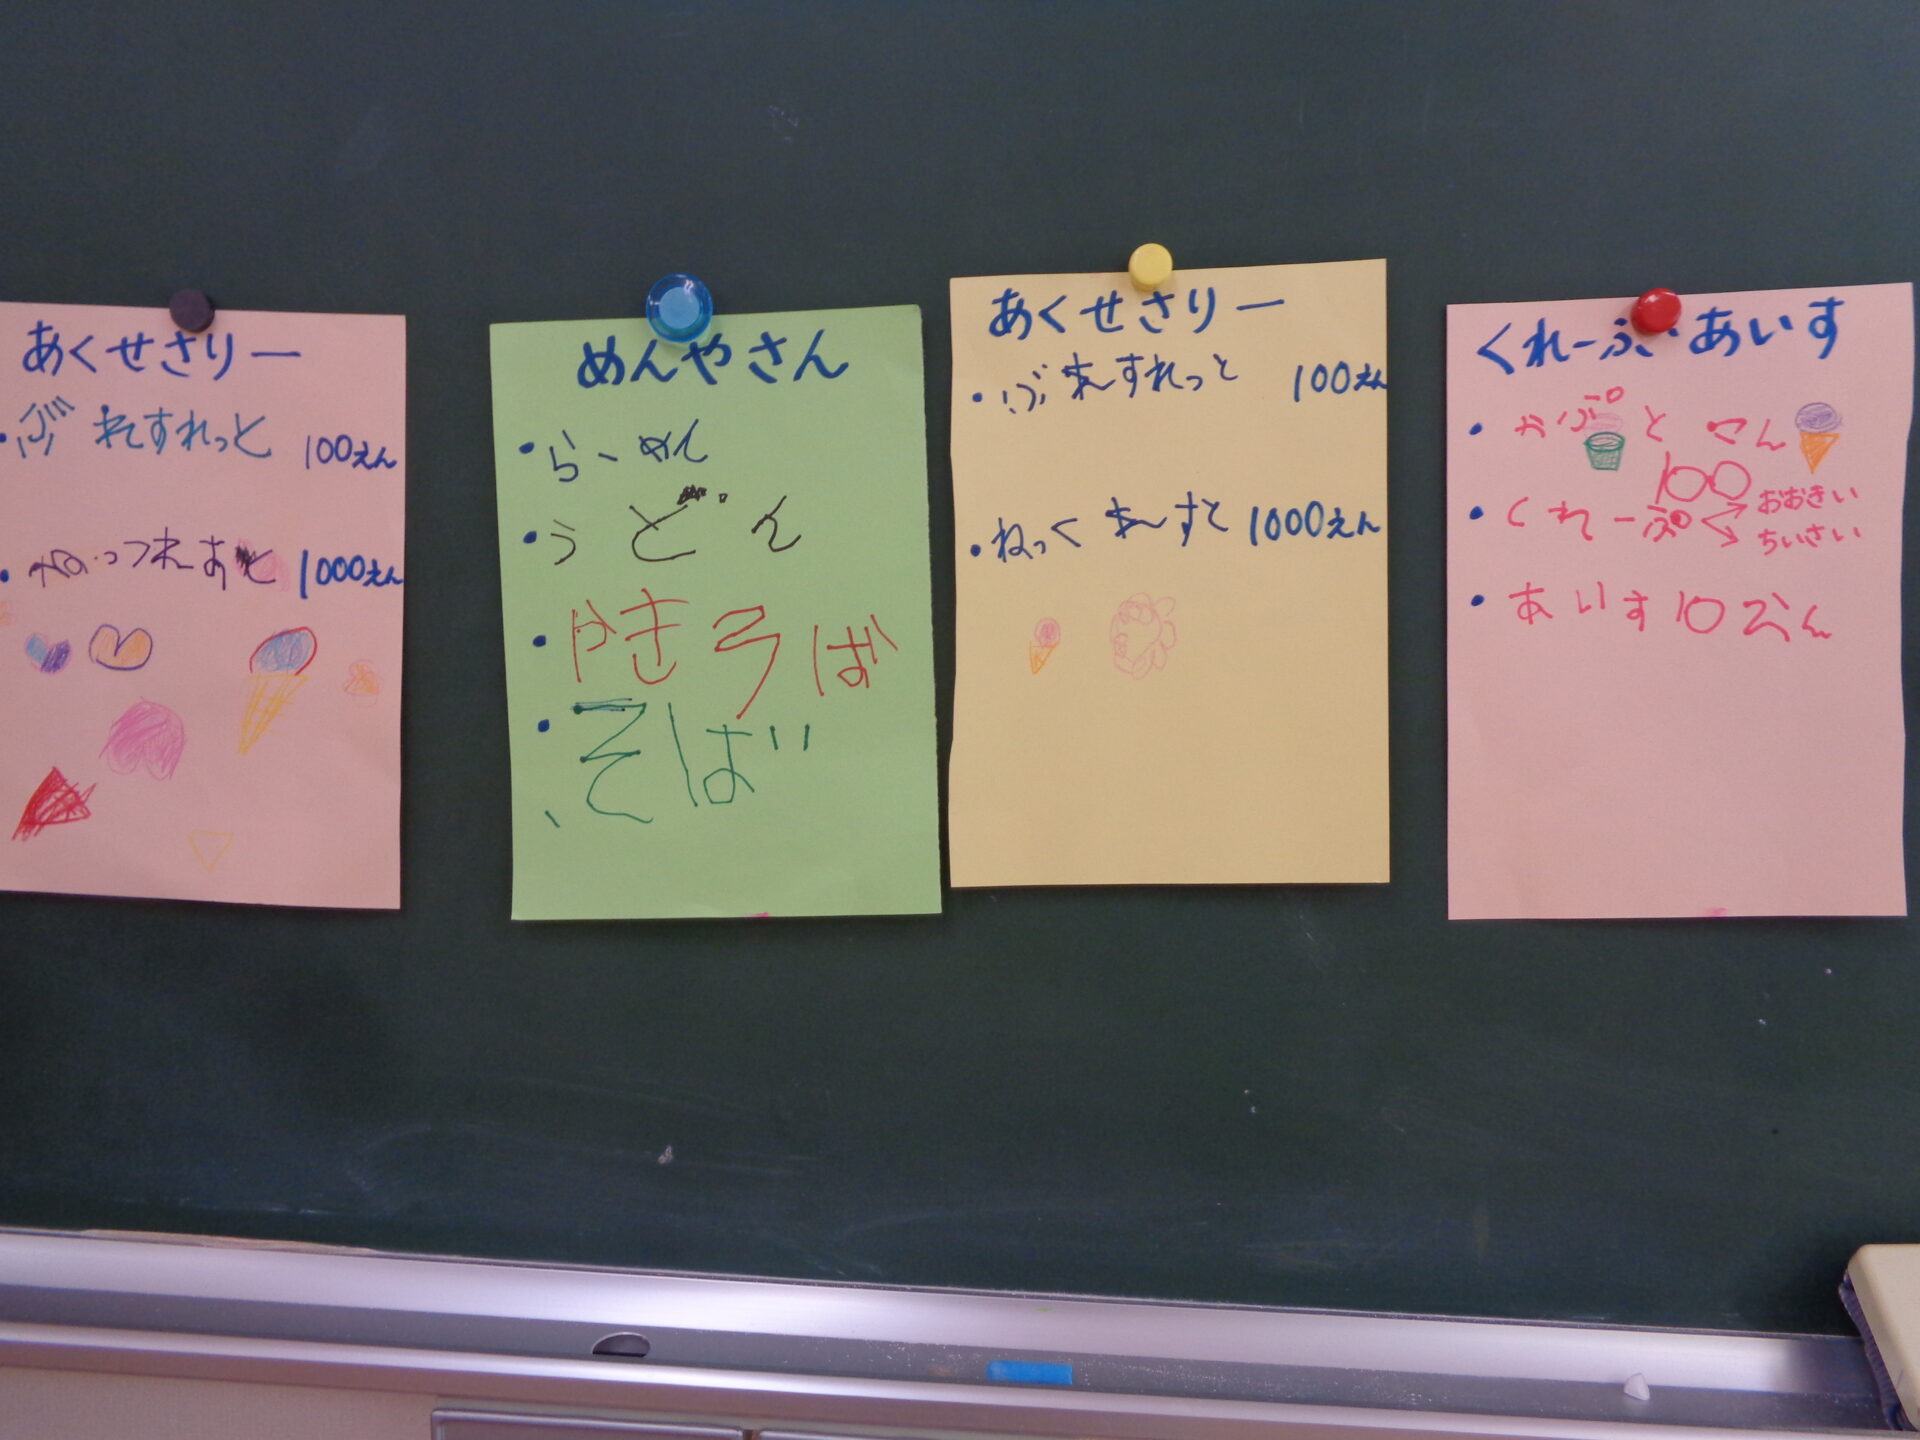 あくせさりー
・ぶれすれっと 100えん
1000えん
めんやさん
・らーめん
・うどん
・やきそば
・そば
あくせさりー
・ぶれーすれっと 100えん
・ねっくれーすと 1000えん
くれーぷあいす
・かぷと こーん
100
・くれーぷ おおきい
ちいさい
・あいす 10えん